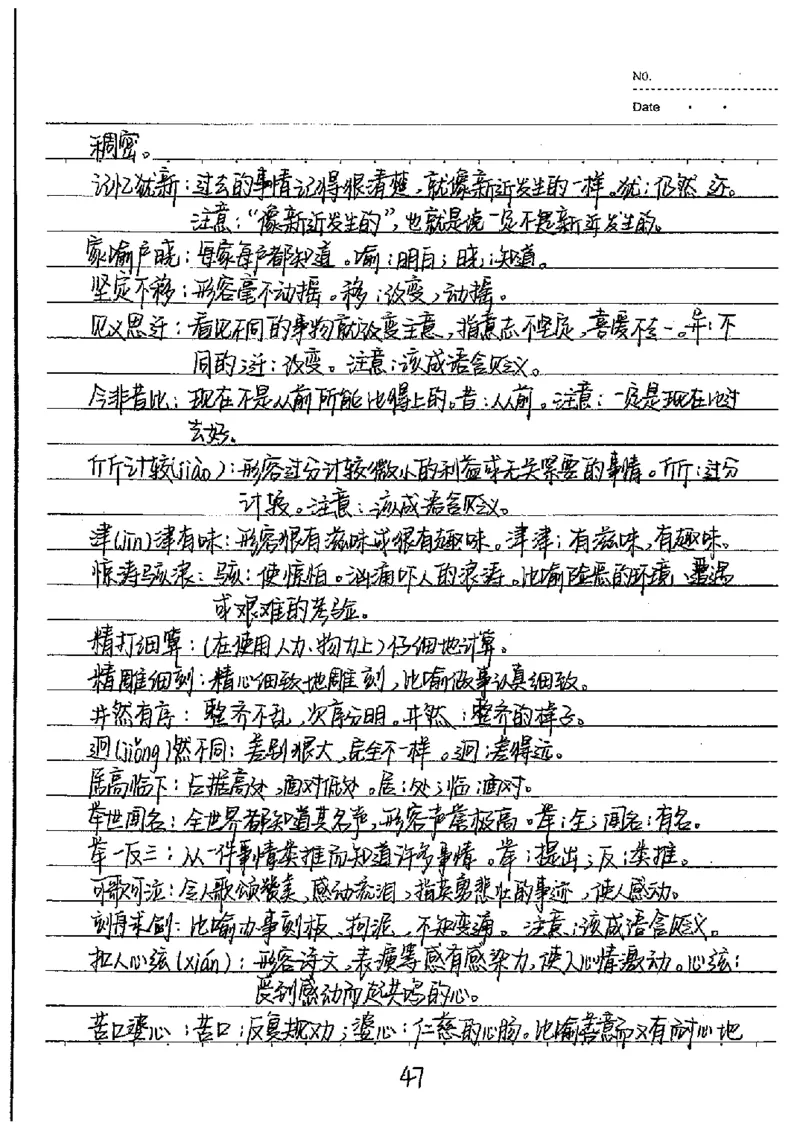 No.
Date
稠密。
记忆犹新：过去的事情记得很清楚，就像新近发生的一样。犹：仍然 还。
注意："像新近发生的"，也就是说一定不是新近发生的。
家喻户晓：每家每户都知道。喻：明白；晓：知道。
坚定不移：形容毫不动摇。移：改变，动摇。
见义思迁：看见不同的事物就改变主意，指意志不坚定，喜爱不专一。异：不
同的；迁：改变。注意：该成语含贬义。
今非昔比：现在不是从前所能比得上的。昔：从前。注意：一定是现在比过
去好。
斤斤计较(jiào)：形容过分计较微小的利益或无关紧要的事情。斤斤：过分
计较。注意：该成语含贬义。
津(jīn)津有味：形容很有滋味或很有趣味。津津：有滋味，有趣味。
惊涛骇浪：骇：使惊怕。汹涌吓人的浪涛。比喻险恶的环境、遭遇
或艰难的考验。
精打细算：(在使用人力、物力上)仔细地计算。
精雕细刻：精心细致地雕刻，比喻做事认真细致。
井然有序：整齐不乱，次序分明。井然：整齐的样子。
迥(jiǒng)然不同：差别很大，完全不一样。迥：差得远。
居高临下：占据高处，面对低处。居：处；临：面对。
举世闻名：全世界都知道其名声，形容声誉极高。举：全；闻名：有名。
举一反三：从一件事情类推而知道许多事情。举：提出；反：类推。
可歌可泣：令人歌颂赞美，感动流泪，指英勇悲壮的事迹，使人感动。
刻舟求剑：比喻办事刻板、拘泥，不知变通。注意：该成语含贬义。
扣人心弦(xián)：形容诗文、表演等感有感染力，使人心情激动。心弦：
受到感动而起共鸣的心。
苦口婆心：苦口：反复规劝；婆心：仁慈的心肠。比喻善意而又有耐心地
47